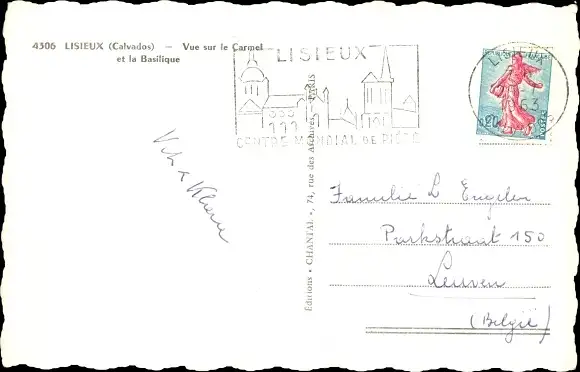 4306 LISIEUX (Calvados) — Vue sur le Carmel
et la Basilique
LISIEUX
CENTRE MONDIAL DE PIÉTÉ
LISIEUX
63
Éditions • CHANTAL •, 74, rue des Archives - PARIS
Familie L Engelen
Parkstraat 150
Leuven
(België)